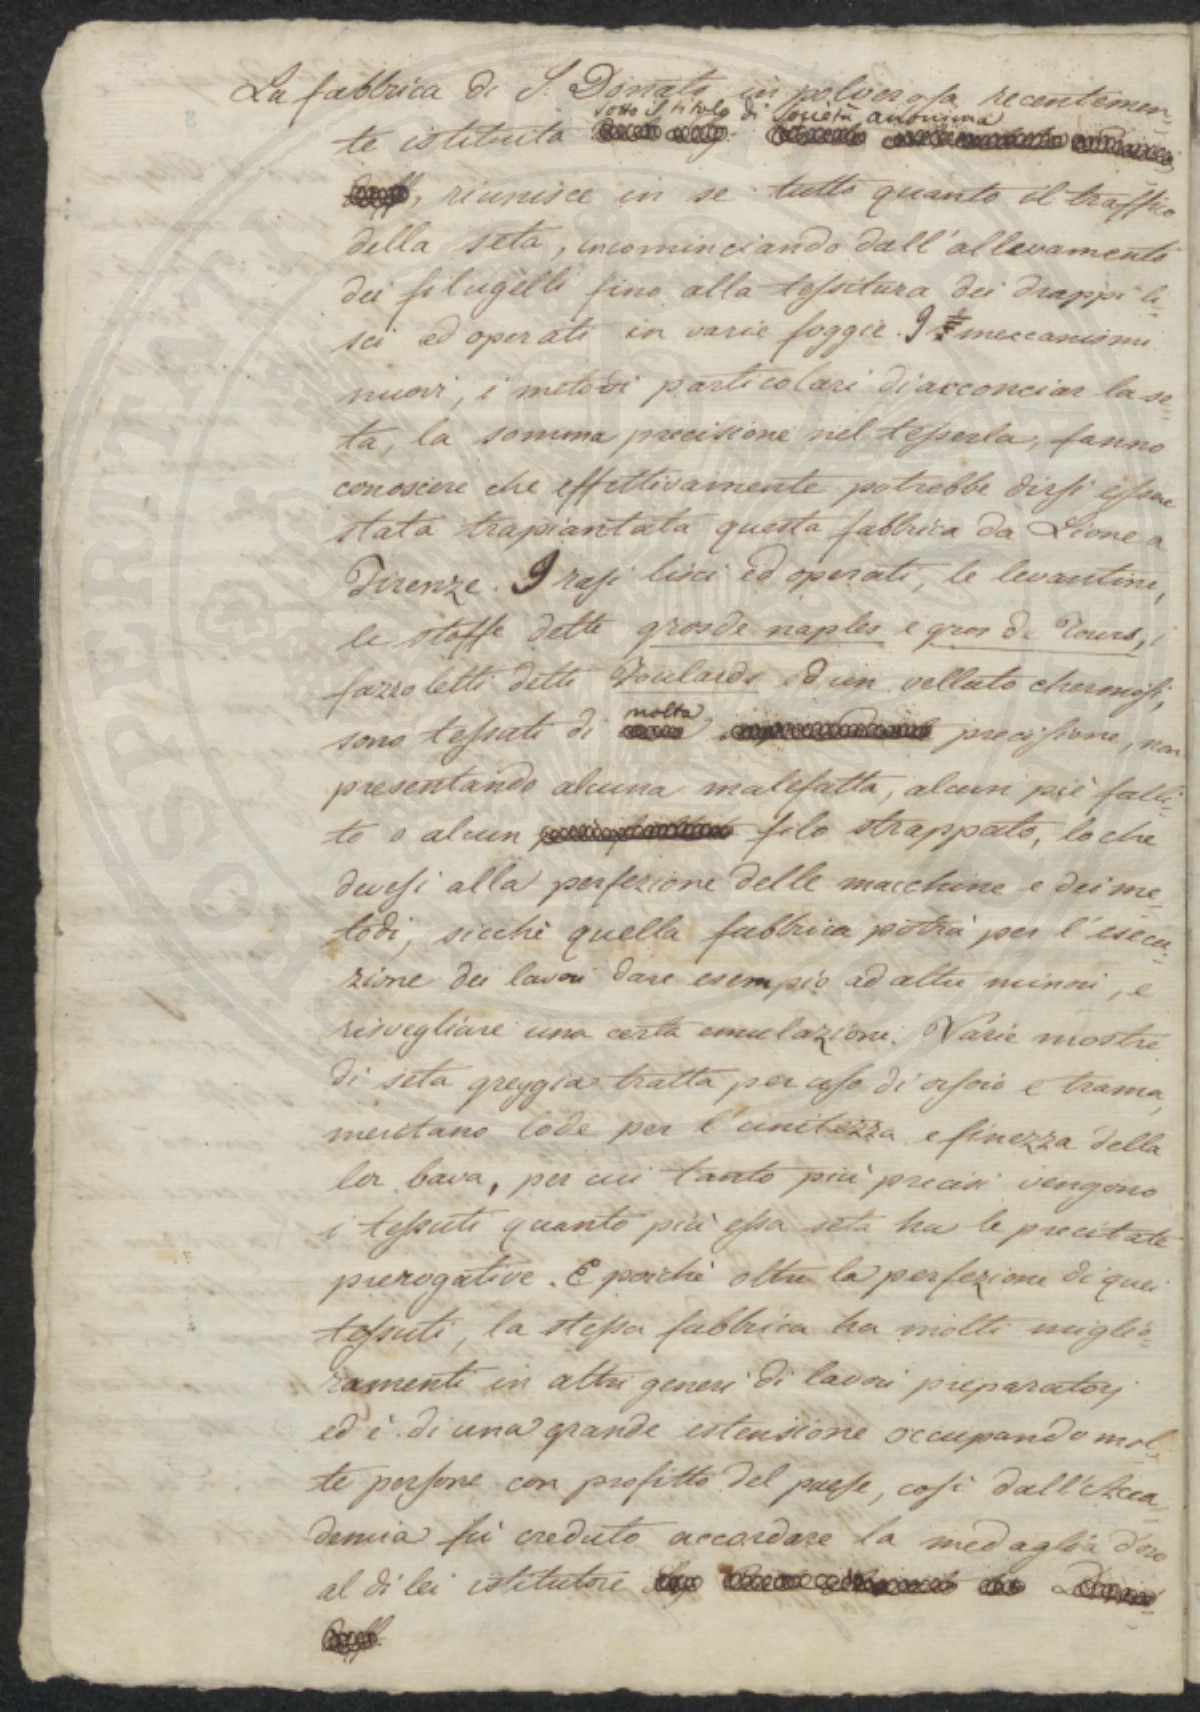 La fabbrica di S. Donato in polverosa recentemen-
sotto il titolo di Società anonima
te istituita
, riunisce in se tutto quanto il traffico
della seta, incominciando dall'allevamento
dei filugelli fino alla tessitura dei drappi li-
sci ed operati in varie foggie. I meccanismi
nuovi, i metodi particolari di acconciar la se-
ta, la somma precisione nel tesserla, fanno
conoscere che effettivamente potrebbe dirsi essere
stata trapiantata questa fabbrica da Lione a
Firenze. I rasi lisci ed operati, le levantine,
le stoffe dette gros de naples e gros de Tours, i
fazzoletti detti Foulards ed un vellato chermisi,
molta
sono tessuti di precisione, non
presentando alcuna malefatta, alcun piè falli-
to o alcun filo strappato, lo che
devesi alla perfezione delle macchine e dei me-
todi, sicchè quella fabbrica potrà per l'esecu-
zione dei lavori dare esempio ad altre minori, e
risvegliare una certa emulazione. Varie mostre
di seta greggia tratta per uso di orsoio e trama,
meritano lode per l'unitezza e finezza della
lor bava, per cui tanto più precisi vengono
i tessuti quanto più essa seta ha le precitate
prerogative. E poichè oltre la perfezione di quei
tessuti, la stessa fabbrica ha molti miglio-
ramenti in altri generi di lavori preparatorj
ed è di una grande estensione occupando mol-
te persone con profitto del paese, così dall'Acca-
demia fù creduto accordare la medaglia d'oro
al di lei istitutore
PROSPERITATI